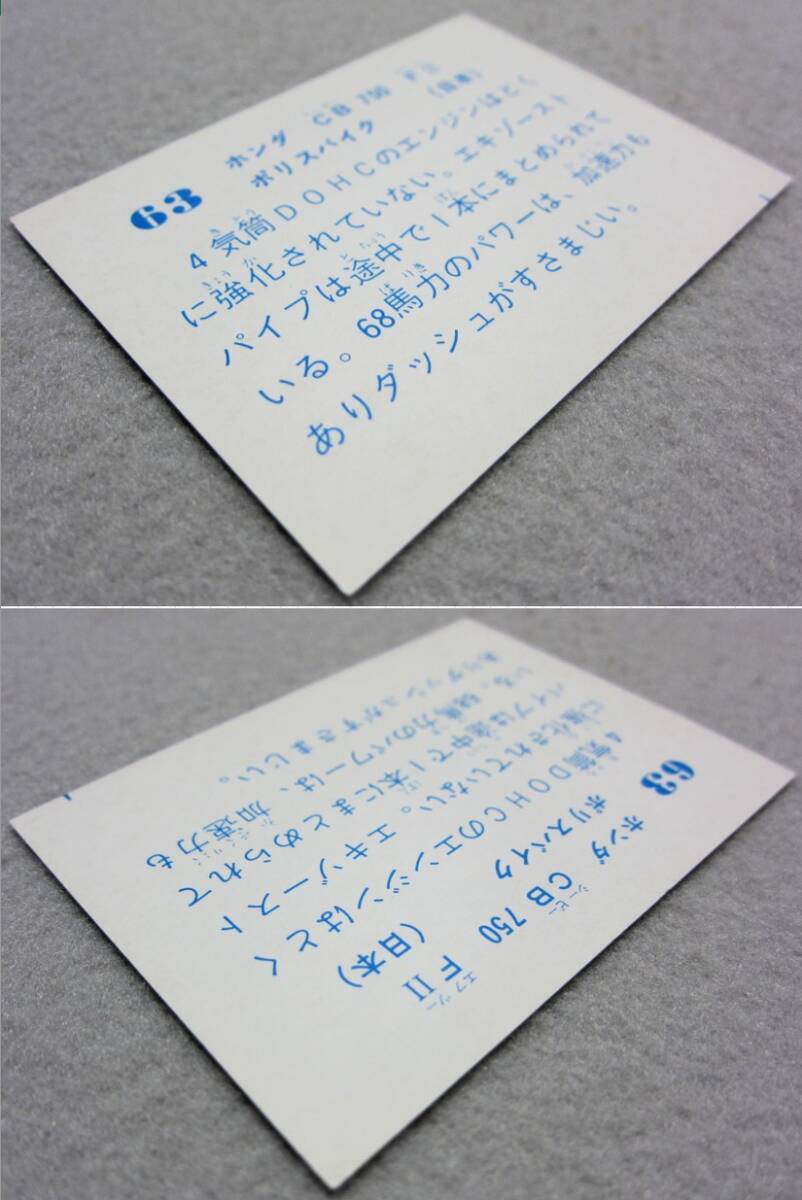 63
ホンダ CB 750 FII
ポリスバイク (日本)
4気筒DOHCのエンジンはとく
に強化されていない。エキゾースト
パイプは途中で1本にまとめられて
いる。68馬力のパワーは、加速力も
ありダッシュがすさまじい。
63
シービー エフツー
ホンダ CB 750 FII
ポリスバイク (日本)
4気筒DOHCのエンジンはとく
に強化されていない。エキゾースト
パイプは途中で1本にまとめられて
いる。68馬力のパワーは、加速力も
ありダッシュがすさまじい。